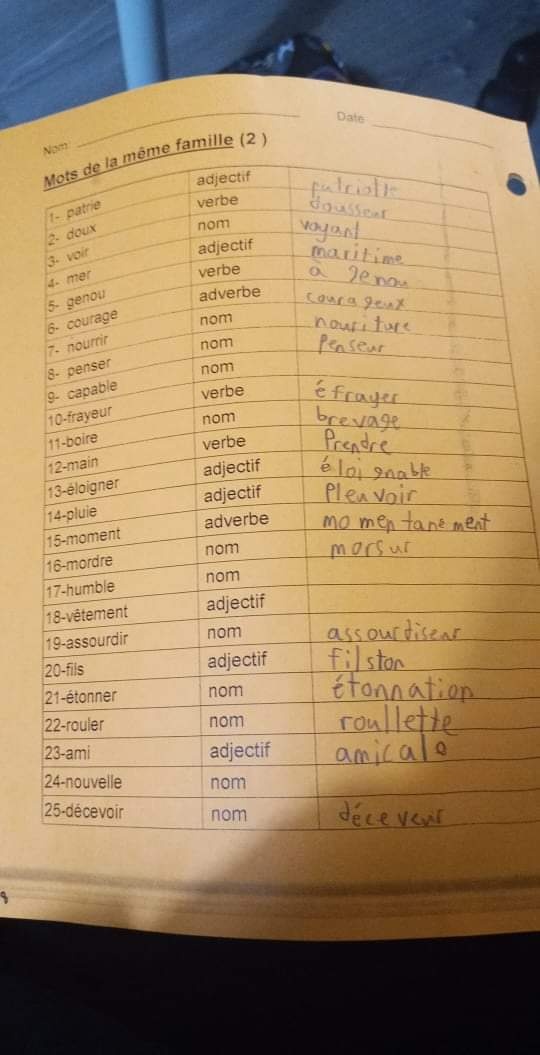 Nom: Date
Mots de la même famille (2 )
1- patrie adjectif patriotte
2- doux verbe dousseur
3- voir nom voyant
4- mer adjectif maritime
5- genou verbe à genou
6- courage adverbe courageux
7- nourrir nom nouriture
8- penser nom Penseur
9- capable nom
10-frayeur verbe éfrayer
11-boire nom brevage
12-main verbe Prendre
13-éloigner adjectif éloignable
14-pluie adjectif Pleuvoir
15-moment adverbe momentanement
16-mordre nom morsur
17-humble nom
18-vêtement adjectif
19-assourdir nom assourdiseur
20-fils adjectif filston
21-étonner nom étonnation
22-rouler nom roullette
23-ami adjectif amicale
24-nouvelle nom
25-décevoir nom déceveur